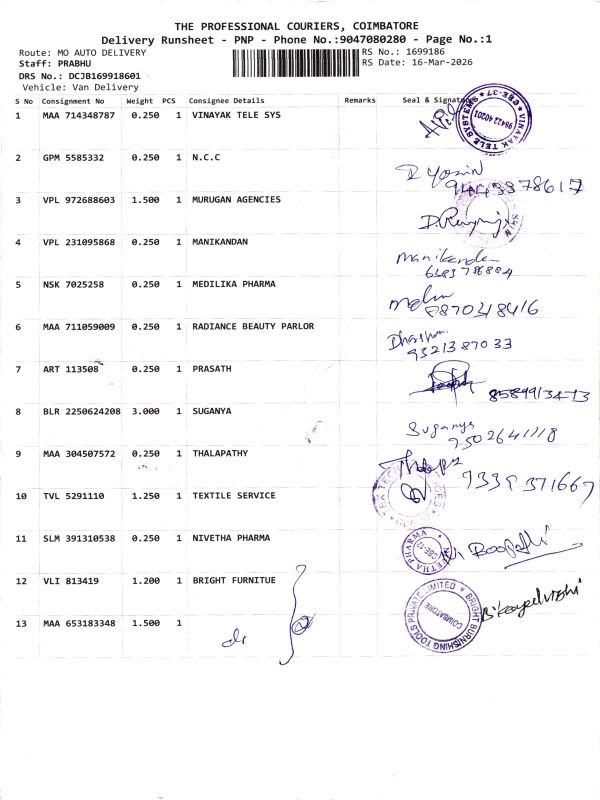 THE PROFESSIONAL COURIERS, COIMBATORE
Delivery Runsheet - PNP - Phone No.:9047080280 - Page No.:1
Route: MO AUTO DELIVERY RS No.: 1699186
Staff: PRABHU RS Date: 16-Mar-2026
DRS No.: DCJB169918601
Vehicle: Van Delivery
S No Consignment No Weight PCS Consignee Details Remarks Seal & Signature
1 MAA 714348787 0.250 1 VINAYAK TELE SYS
VINAYAK TELE SYSTEMS CBE-37 98422 40201
2 GPM 5585332 0.250 1 N.C.C
3 VPL 972688603 1.500 1 MURUGAN AGENCIES
4 VPL 231095868 0.250 1 MANIKANDAN
Manikandan
5 NSK 7025258 0.250 1 MEDILIKA PHARMA
8870218416
6 MAA 711059009 0.250 1 RADIANCE BEAUTY PARLOR
9321387033
7 ART 113508 0.250 1 PRASATH
8 BLR 2250624208 3.000 1 SUGANYA
Suganya
9 MAA 304507572 0.250 1 THALAPATHY
7339371667
10 TVL 5291110 1.250 1 TEXTILE SERVICE
11 SLM 391310538 0.250 1 NIVETHA PHARMA
PHARMA CBE-12
12 VLI 813419 1.200 1 BRIGHT FURNITUE
BRIGHT BURNISHING TOOLS PRIVATE LIMITED COIMBATORE
13 MAA 653183348 1.500 1